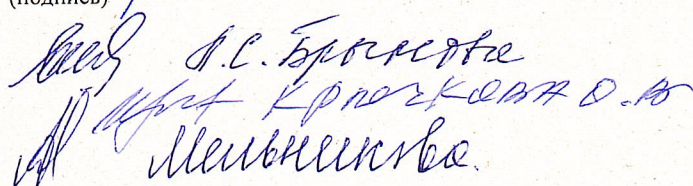 (подпись)
А.С. Брынова
Крючкова О.В
Мельникова.